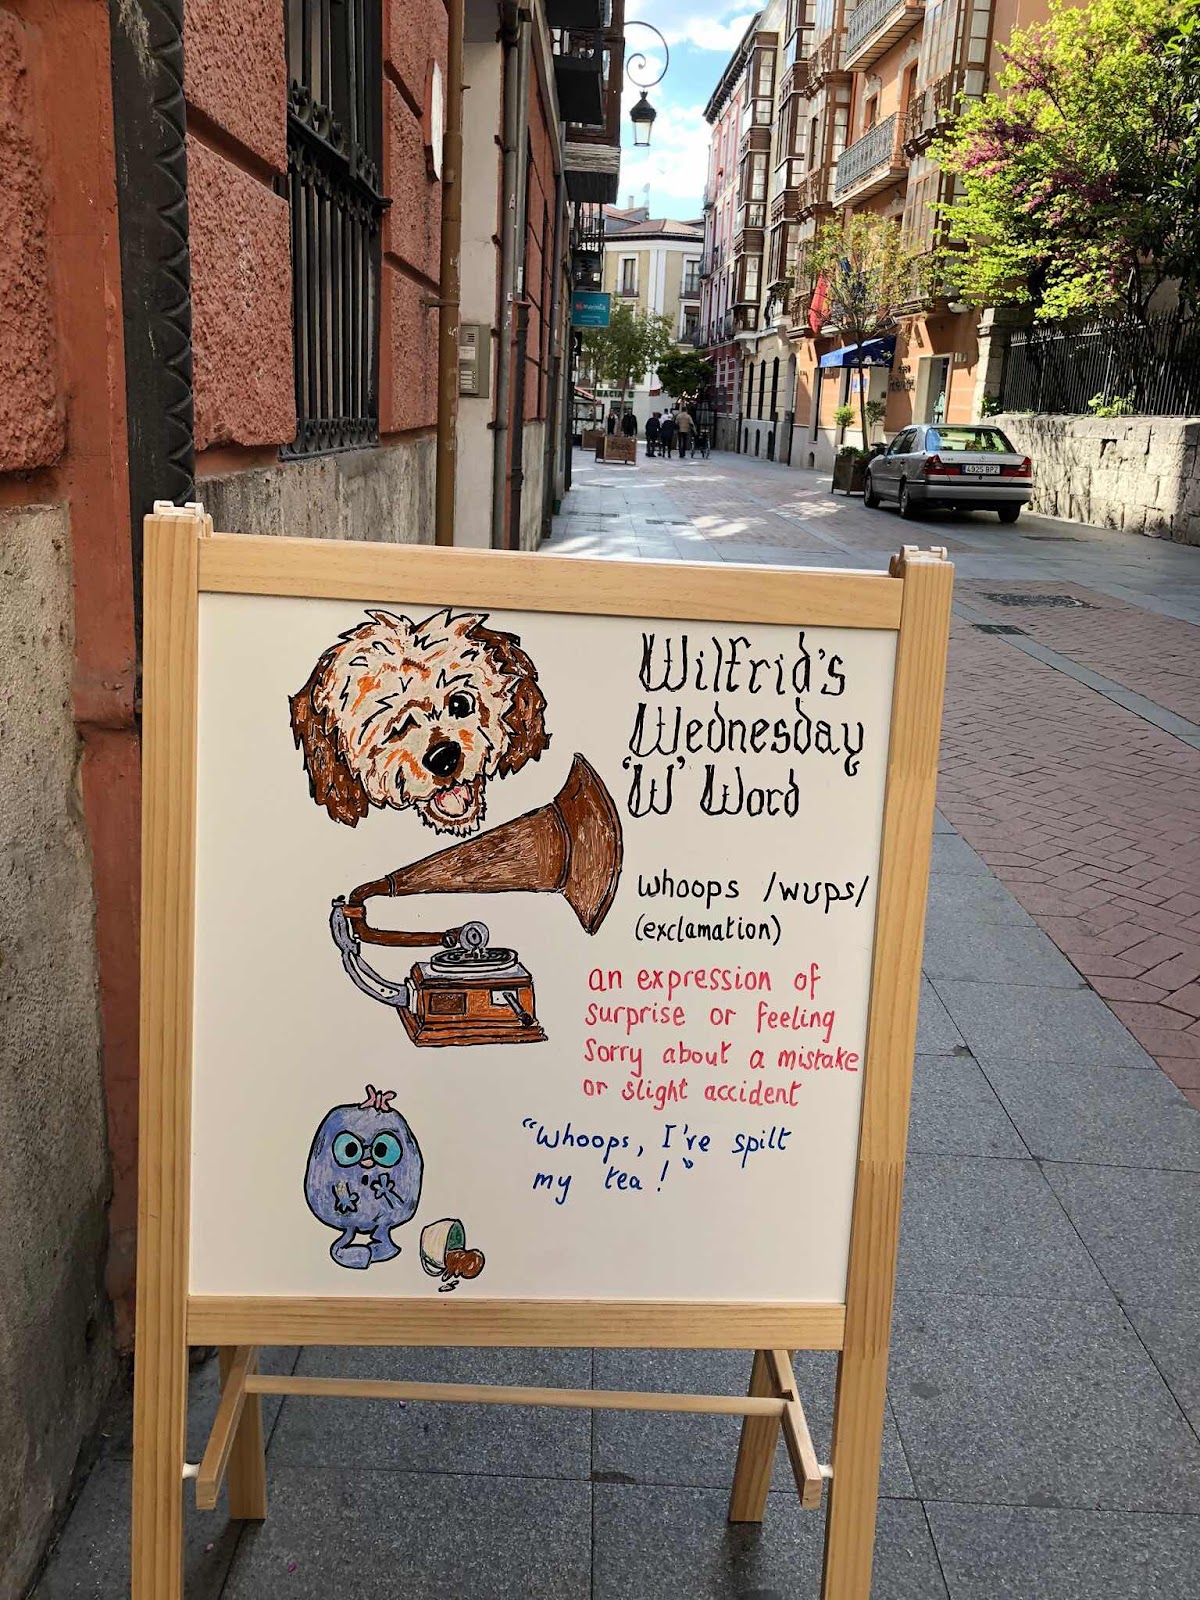 Wilfrid's
Wednesday
'W' Word
whoops /wʊps/
(exclamation)
an expression of
surprise or feeling
sorry about a mistake
or slight accident
"Whoops, I've spilt
my tea!"
4925 BPZ